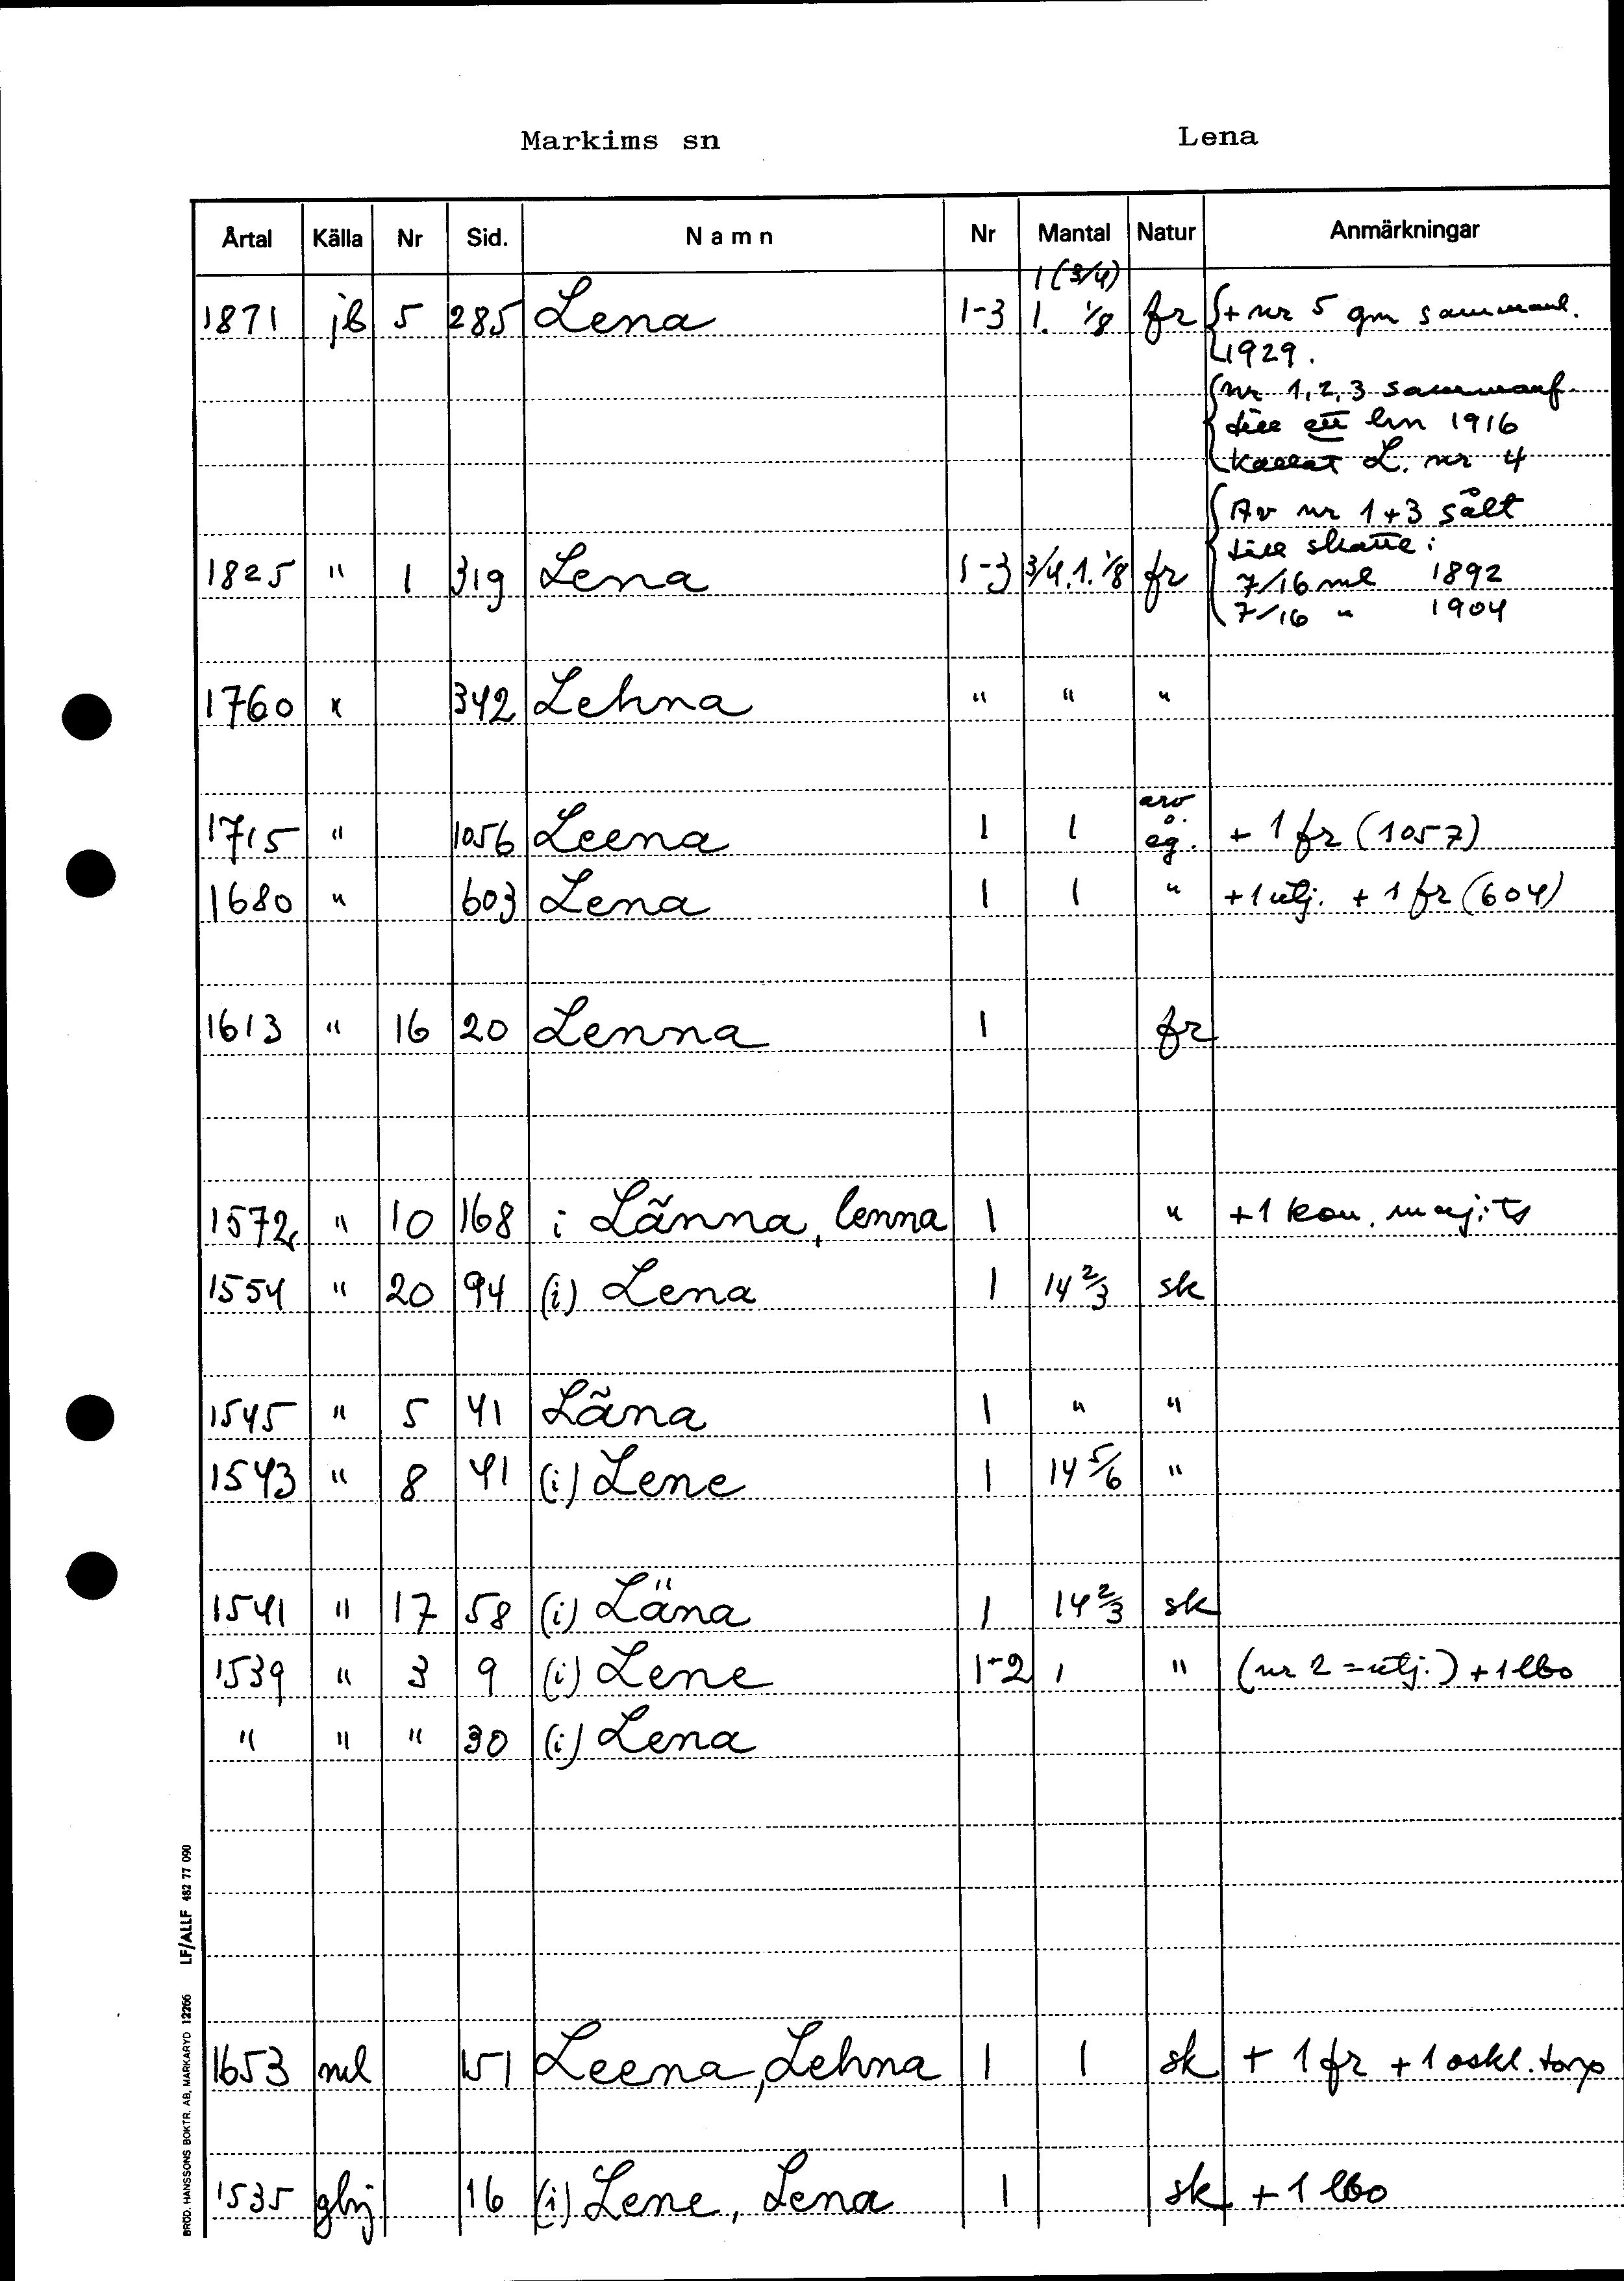 Markims sn Lena
Årtal Källa Nr Sid. Namn Nr Mantal Natur Anmärkningar
1 (3/4)
1871 jb 5 285 Lena 1-3 1. 1/8 fr + nr 5 gm sammanl.
1929.
nr 1, 2, 3 sammanf
till ett hn 1916
kallat L. nr 4
Av nr 1+3 sålt
till skatte:
1825 " 1 319 Lena 1-3 3/4. 1. 1/8 fr 7/16 ml 1892
7/16 " 1904
1760 " 342 Lehna " " "
1715 " 1056 Leena 1 1 arv o. eg. + 1 fr (1057)
1680 " 603 Lena 1 1 " +1 utj. + 1 fr (604)
1613 " 16 20 Lenna 1 fr
1572 " 10 168 i Länna, lenna 1 " +1 kon. maj:ts
1554 " 20 94 (i) Lena 1 14 2/3 sk
1545 " 5 41 Läna 1 " "
1543 " 8 41 (i) Lene 1 14 5/6 "
1541 " 17 58 (i) Läna 1 14 2/3 sk
1539 " 3 9 (i) Lene 1-2 1 " (nr 2 = utj.) + 1 lbo
" " " 30 (i) Lena
1653 ml 151 Leena, Lehna 1 1 sk + 1 fr + 1 oskl. torp
1535 ghj 16 (i) Lene, Lena 1 sk + 1 lbo
BRÖD. HANSSONS BOKTR. AB, MARKARYD 12266 LF/ALLF 482 77 090